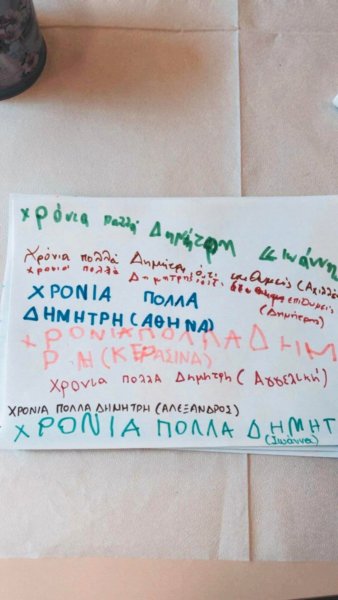 Χρόνια πολλή Δημήτρη Ιωάννη
Χρόνια πολλά Δημήτρη ό,τι επιθυμείς (Αχιλλέ
χρονια πολλά Δημητρη ότι επιθυμείς
(Δημήτρης)
ΧΡΟΝΙΑ ΠΟΛΛΑ
ΔΗΜΗΤΡΗ (ΑΘΗΝΑ)
ΧΡΟΝΙΑ ΠΟΛΛΑ ΔΗΙΜ
Ρ.Η (ΚΕΡΑΣΙΝΑ)
Χρονια πολλα Δημητρη (Αγγελική)
ΧΡΟΝΙΑ ΠΟΛΛΑ ΔΗΜΗΤΡΗ (ΑΛΕΞΑΝΔΡΟΣ)
ΧΡΟΝΙΑ ΠΟΛΛΑ ΔΗΜΗΤ
(Ιωάννα)